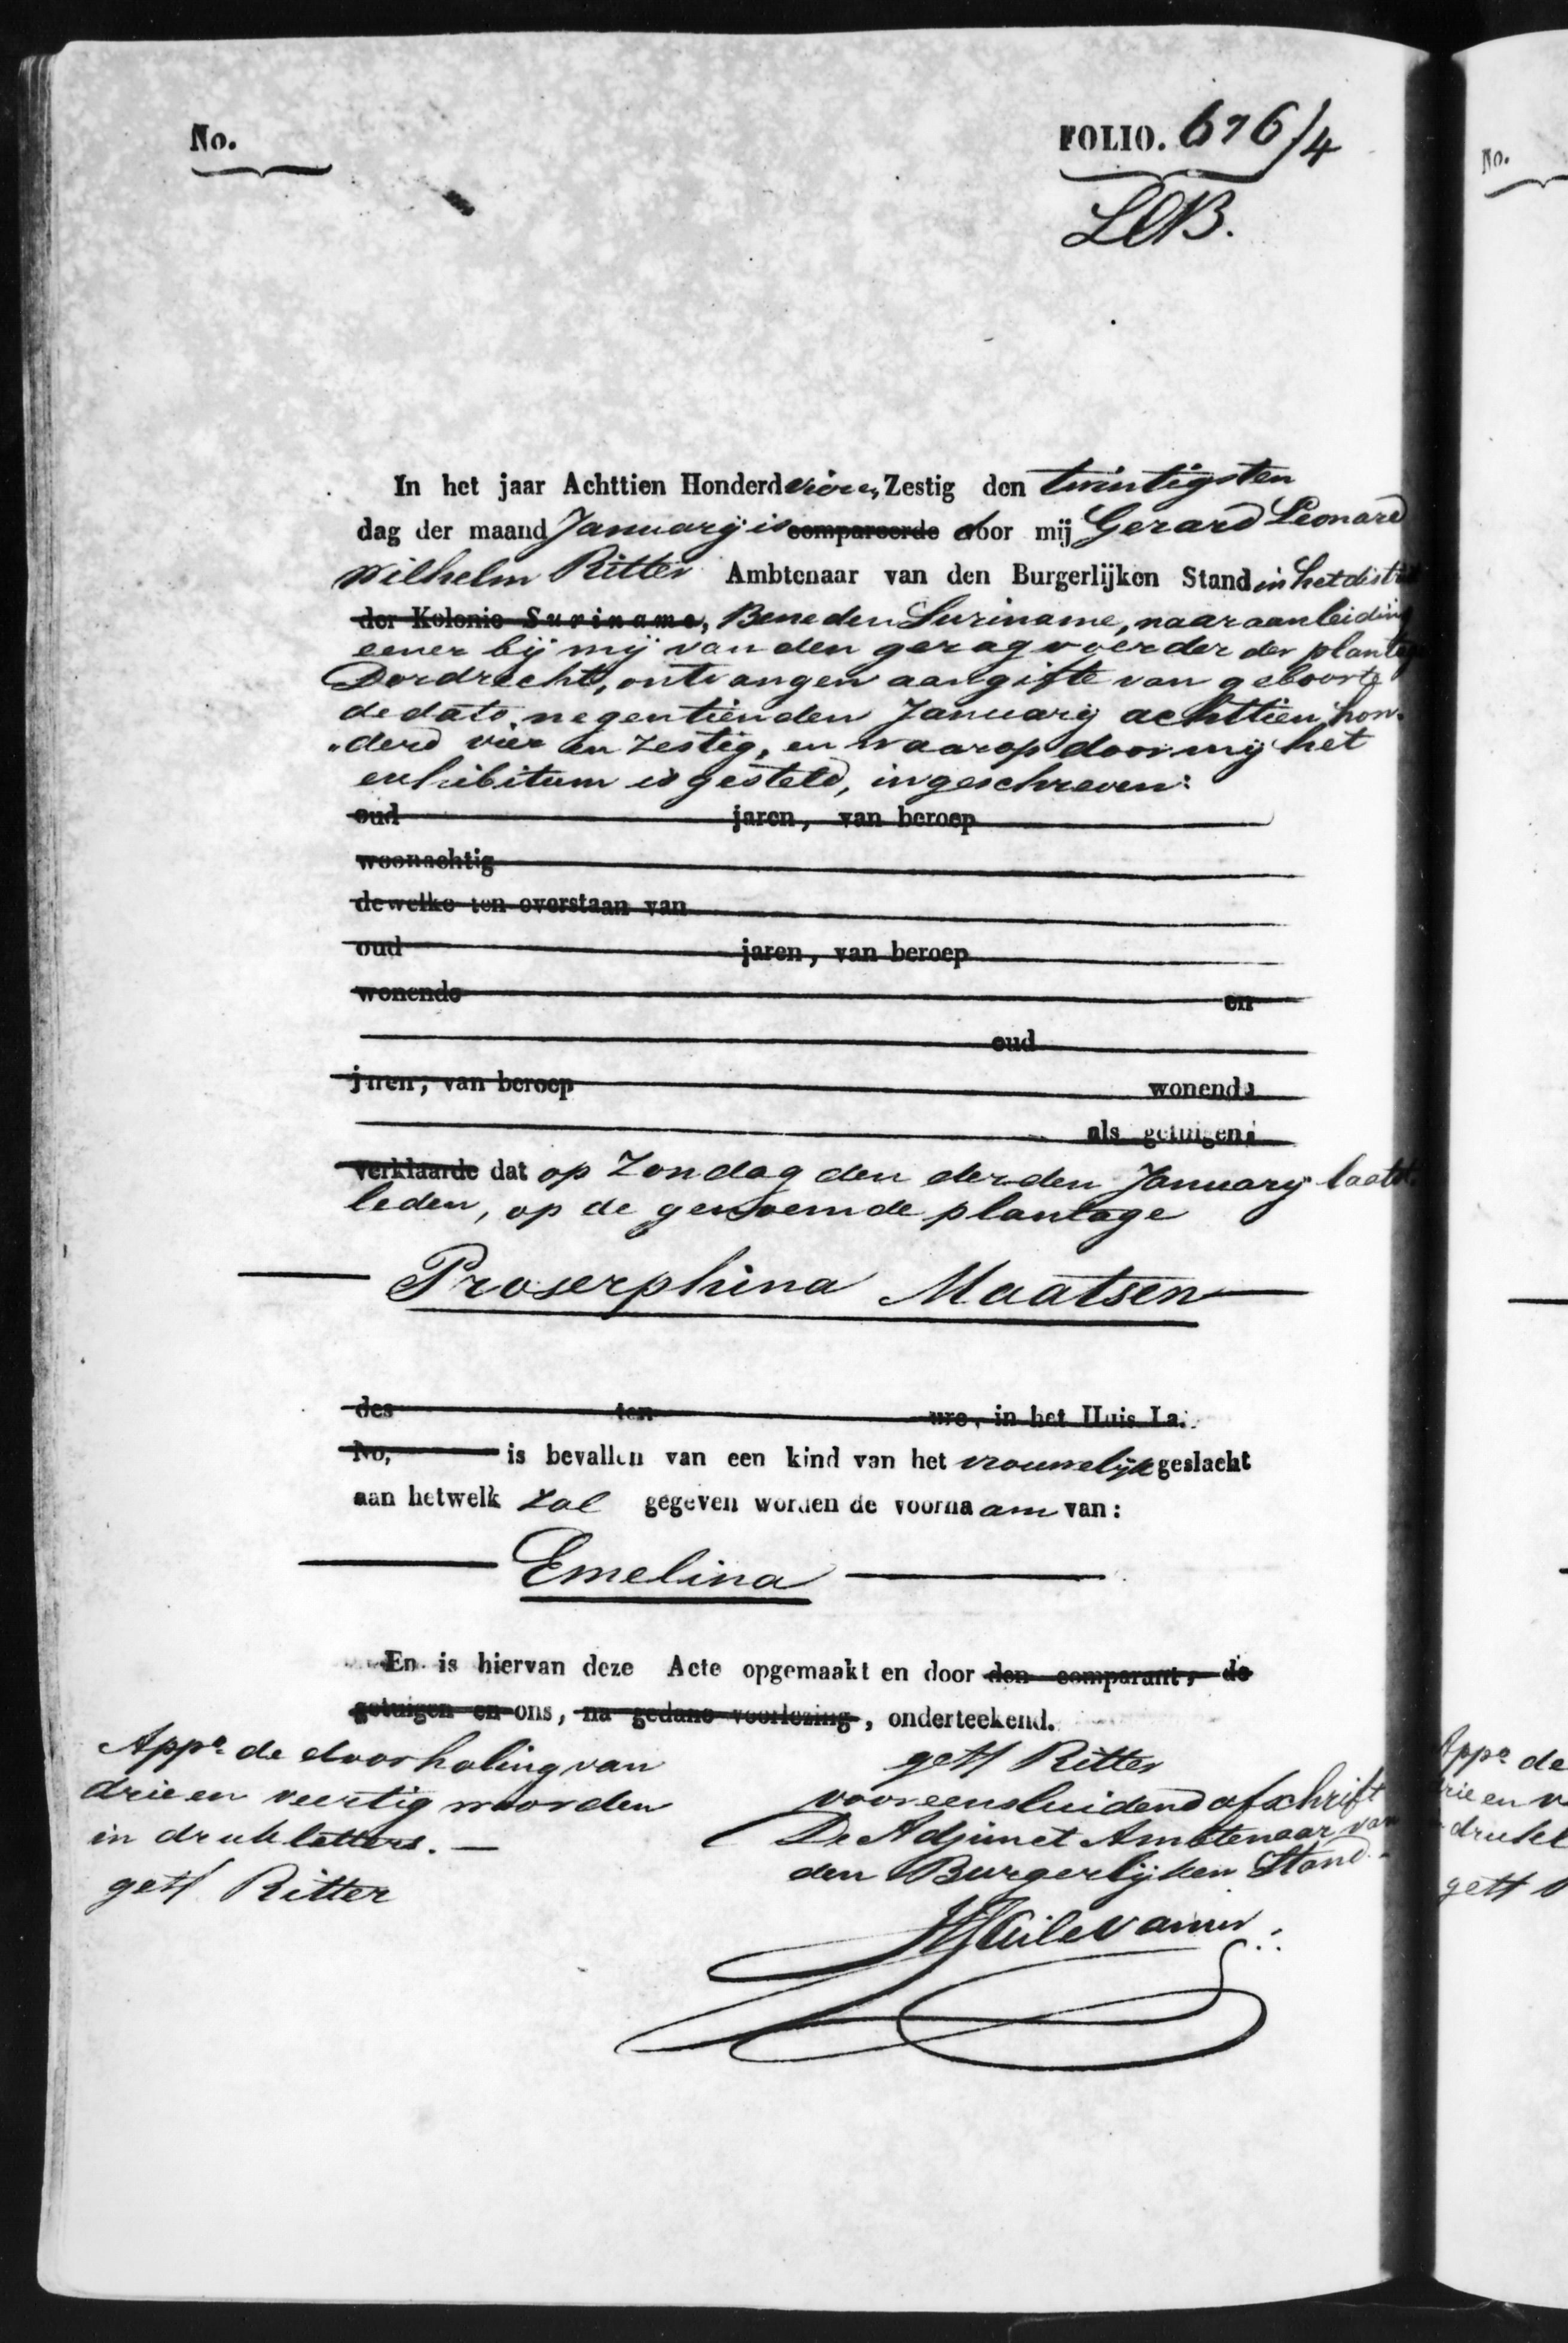 No.
FOLIO. 676/4
LOB.
In het jaar Achttien Honderd vier en Zestig den twintigsten
dag der maand January is compareerde door mij Gerard Leonard
Wilhelm Ritter Ambtenaar van den Burgerlijken Stand in het distr
der Kolonie Suriname, Beneden Suriname, naar aanleiding
eener bij mij van den geragvoerder der plantage
Dordrecht, ontvangen aangifte van geboorte
de dato negentienden January achttien hon-
"derd vier en zestig, en waarop door mij het
exhibitum is gesteld, ingeschreven:
oud jaren, van beroep
woonachtig
dewelke ten overstaan van
oud jaren, van beroep
wonende en
oud
jaren, van beroep wonende
als getuigen;
verklaarde dat op Zondag den derden January laatst
leden, op de genoemde plantage
Proserphina Maatsen
des ten ure, in het Huis La.
No, is bevallen van een kind van het vrouwelijk geslacht
aan hetwelk zal gegeven worden de voornaam van:
Emelina
En is hiervan deze Acte opgemaakt en door den comparant, de
getuigen en ons, na gedane voorlezing, onderteekend.
Appe de doorhaling van
drie en veertig woorden
in drukletters. —
gett Ritter
gett Ritter
voor eensluidend afschrift
De Adjunct Ambtenaar van
den Burgerlijken Stand
No.
Appe de
drie en v
drukl
gett